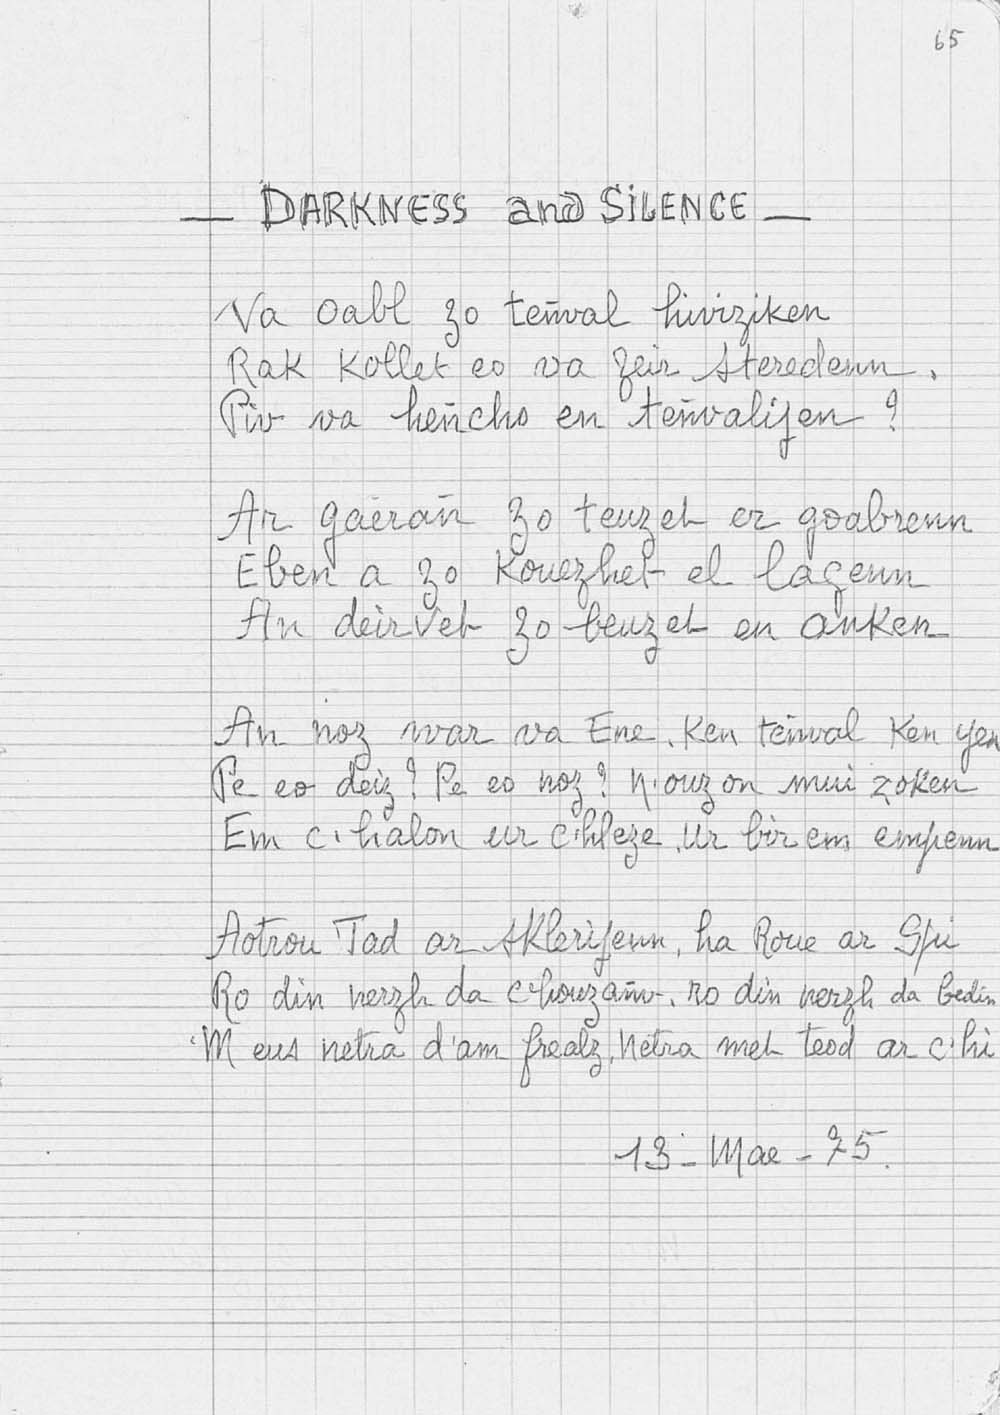 65
— DARKNESS and SiLENCE —
Va Oabl zo teñval hiviziken
Rak Kollet eo va zeir steredenn.
Piv va heñcho en teñvalijen ?
Ar gaérañ zo teuzet er goabrenn
Eben a zo Kouezhet el lagenn
An deirvet zo beuzet en anken
An noz war va Ene. Ken teñval Ken yen
Pe eo deiz? Pe eo noz? N'ouzon mui zoken
Em c'halon ur c'hleze. Ur bir em empenn
Aotrou Tad ar sklerijenn, ha Roue ar Spi
Ro din nerzh da c'houzañv. ro din nerzh da bedin
'M eus netra d'am frealz, Netra met teod ar c'hi
13 - Mae - 75.